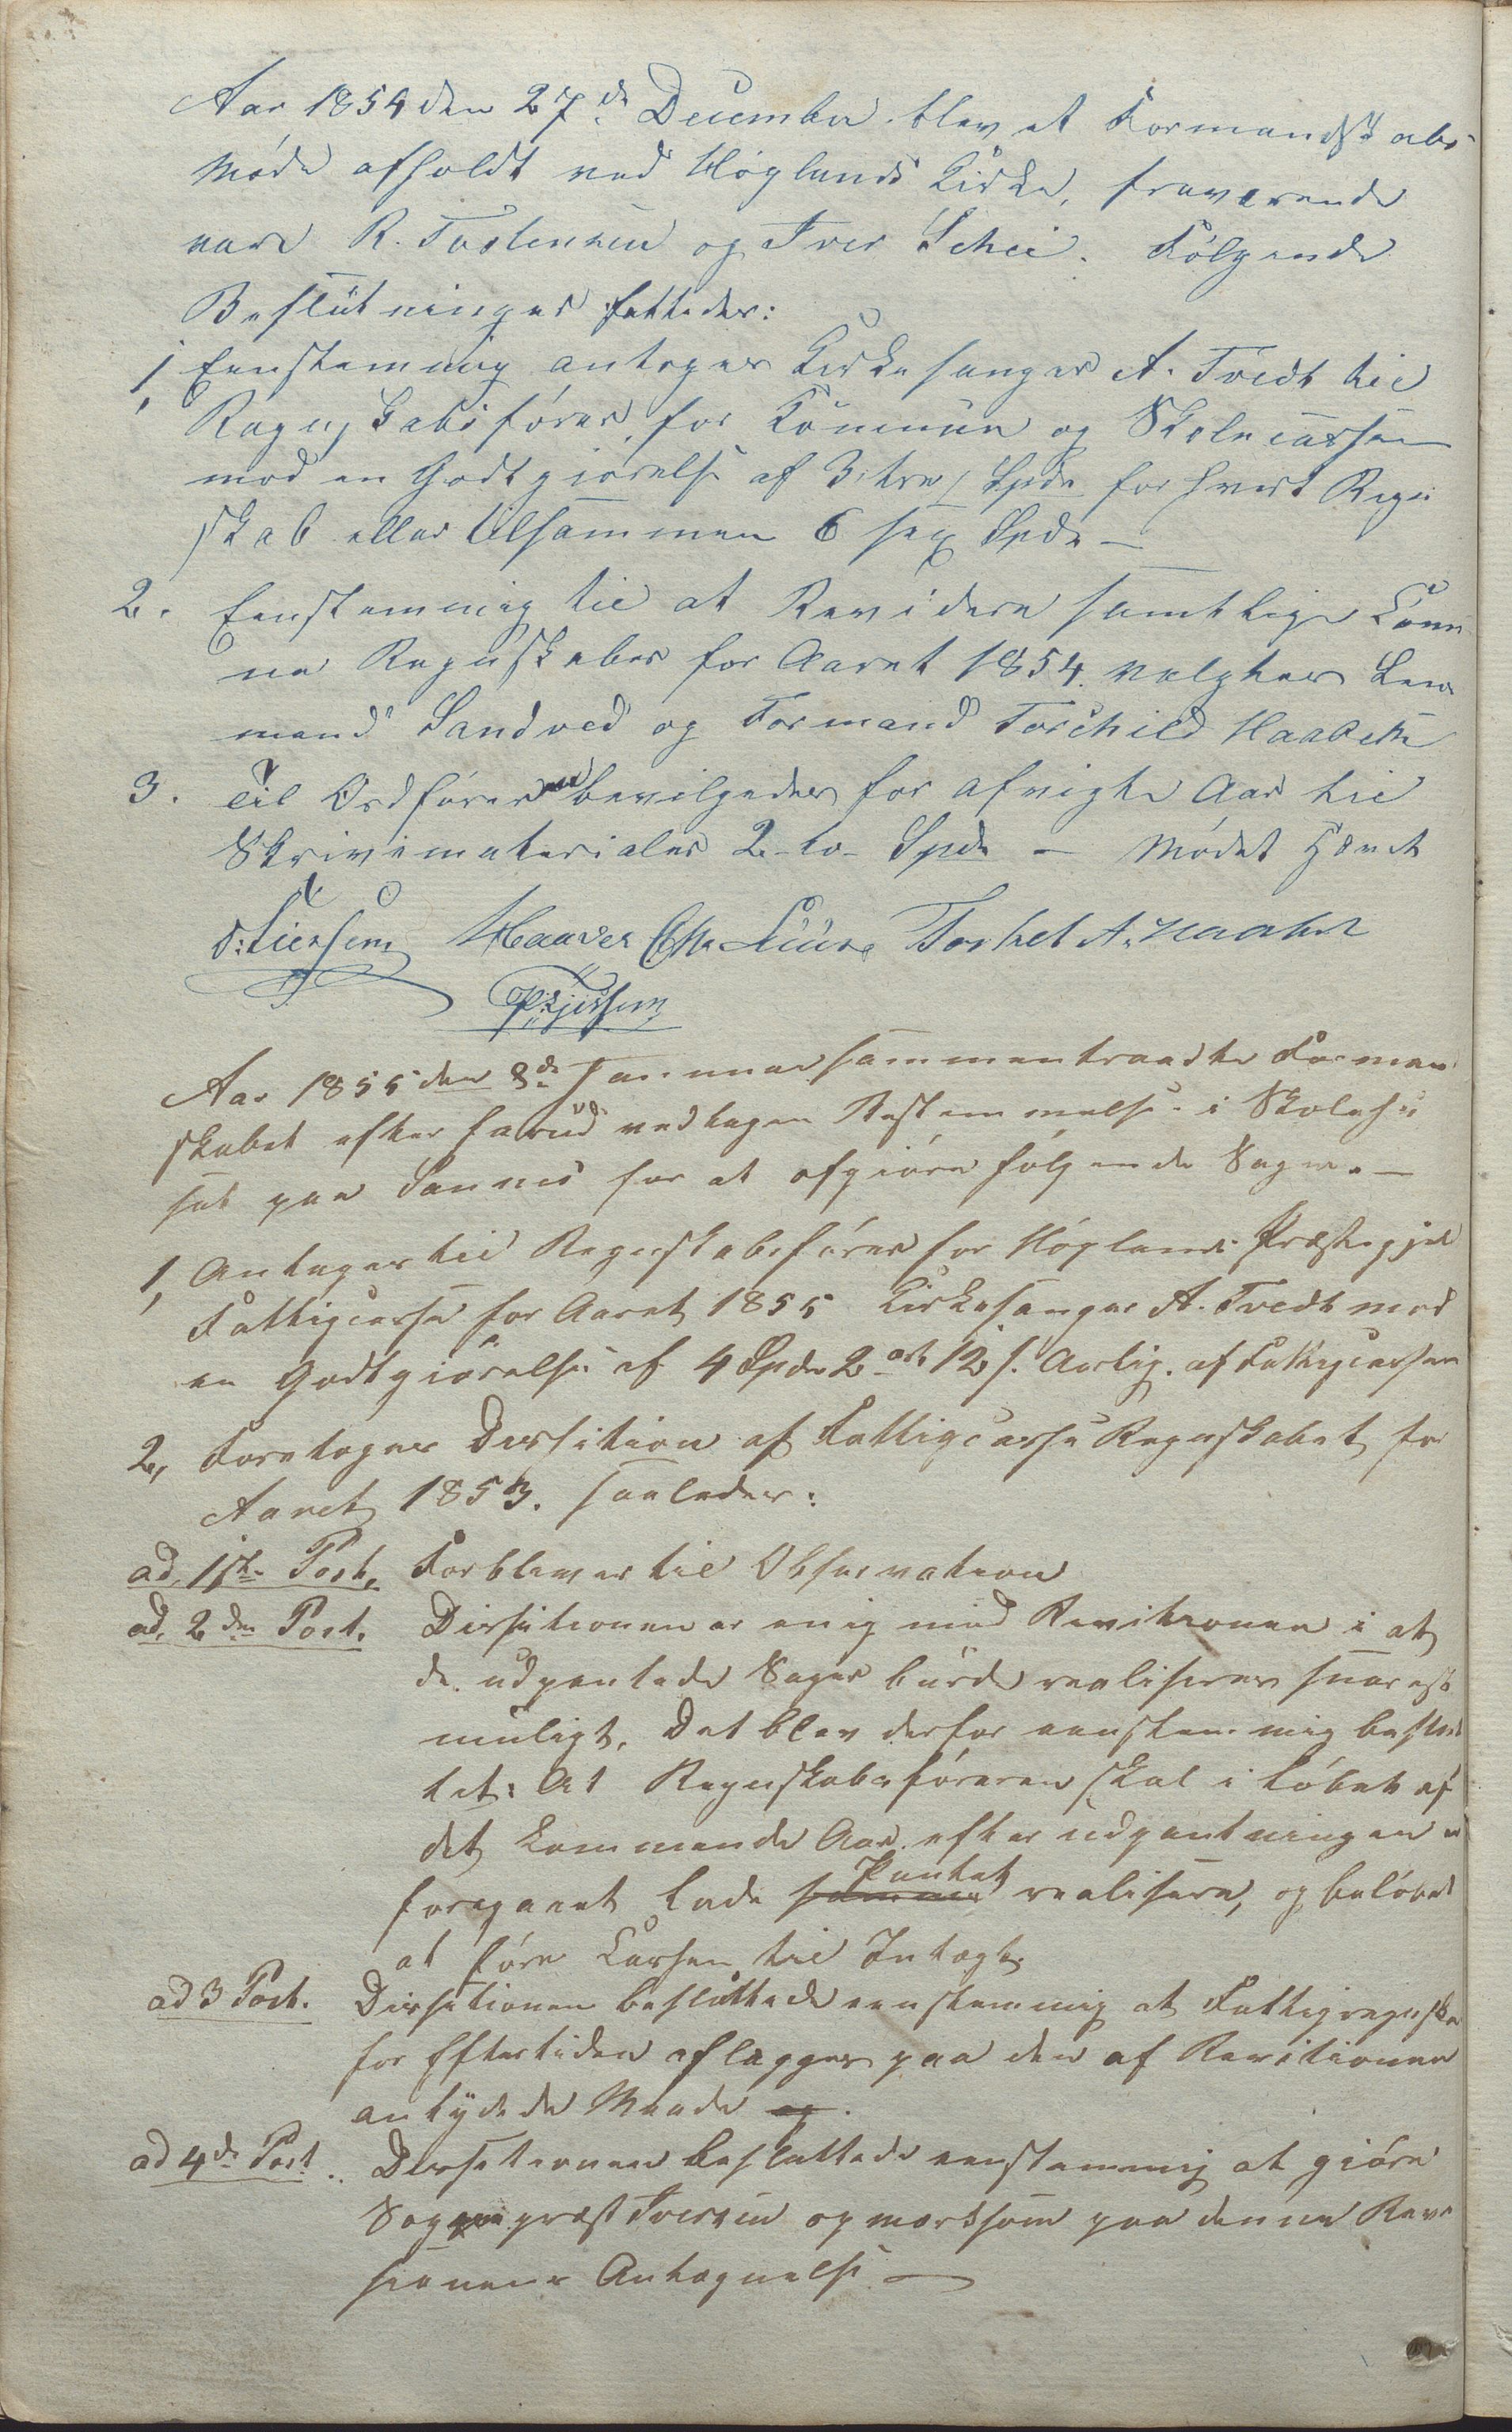 Aar 1854 den 27de December blev et Formandskabs-
Møde afholdt ved Høglands Kirke, fraværende
vare R. Tostensen og Iver Schei. Følgende
Beslutninger fattedes:
1, Eenstemmig antoges Kirkesanger A. Tvedt til
Regnskabsfører for Commune og Skolecassen
mod en Godtgjørelse af 3, tre, Spd for hvert Regn
skab eller tilsammen 6 sex Spd –
2. Eenstemmig til at Revidere samtlige Comm
ne Regnskaber for Aaret 1854 valgtes Lens
mand Sandved og Formand Torchild Haabeth
3. Til Ordføreren bevilgedes for afvigte Aar til
Skrivematerialer 2 - to - Spd – Mødet Hævet
Haaver Torkel A. Haabet
Aar 1855 den 3de Januar sammentraadte Forman
skabet efter forud vedtagen Bestemmelse i Skolehu
set paa Sannes for at afgiøre følgende Sager. –
1, Antages til Regnskabsfører for Høglands Præstegjel
Fattigcasse for Aaret 1855 Kirkesanger A. Tvedt mod
en Godtgiørelse af 4 Spd 2 ort 12 s. Aarlig. af Fattigcassen
2, Foretoges Decition af Fattigcasse Regnskabet for
Aaret 1853. saaledes:
ad, 1ste Post, Forbliver til Observation
ad, 2den Post. Decitionen er enig med Revitionen i at
de udpantede Sager burde realiseres snarest
muligt, Det blev derfor eenstemmig beslut
tet: At Regnskabsføreren skal i Løbet af
det kommende Aar efter udpantningen er
foregaaet lade samme Pantet realisere, og beløbet
at føre Cassen til Intægt,
ad 3 Post. Decitionen besluttede eenstemmig at Fattigregnska
for Eftertiden aflægges paa den af Revitionen
antydede Maade og.
ad 4de Post. Decitionen besluttede eenstemmig at giøre
Sognepræst Iversen opmærksom paa denne Revi
sionens Antegnelse –